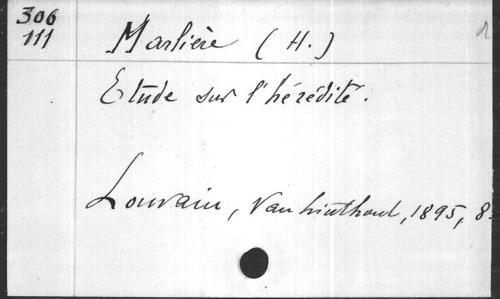 306
111
Marlière (H.)
Etude sur l'hérédité.
Louvain, Van Linthout, 1895, 8.